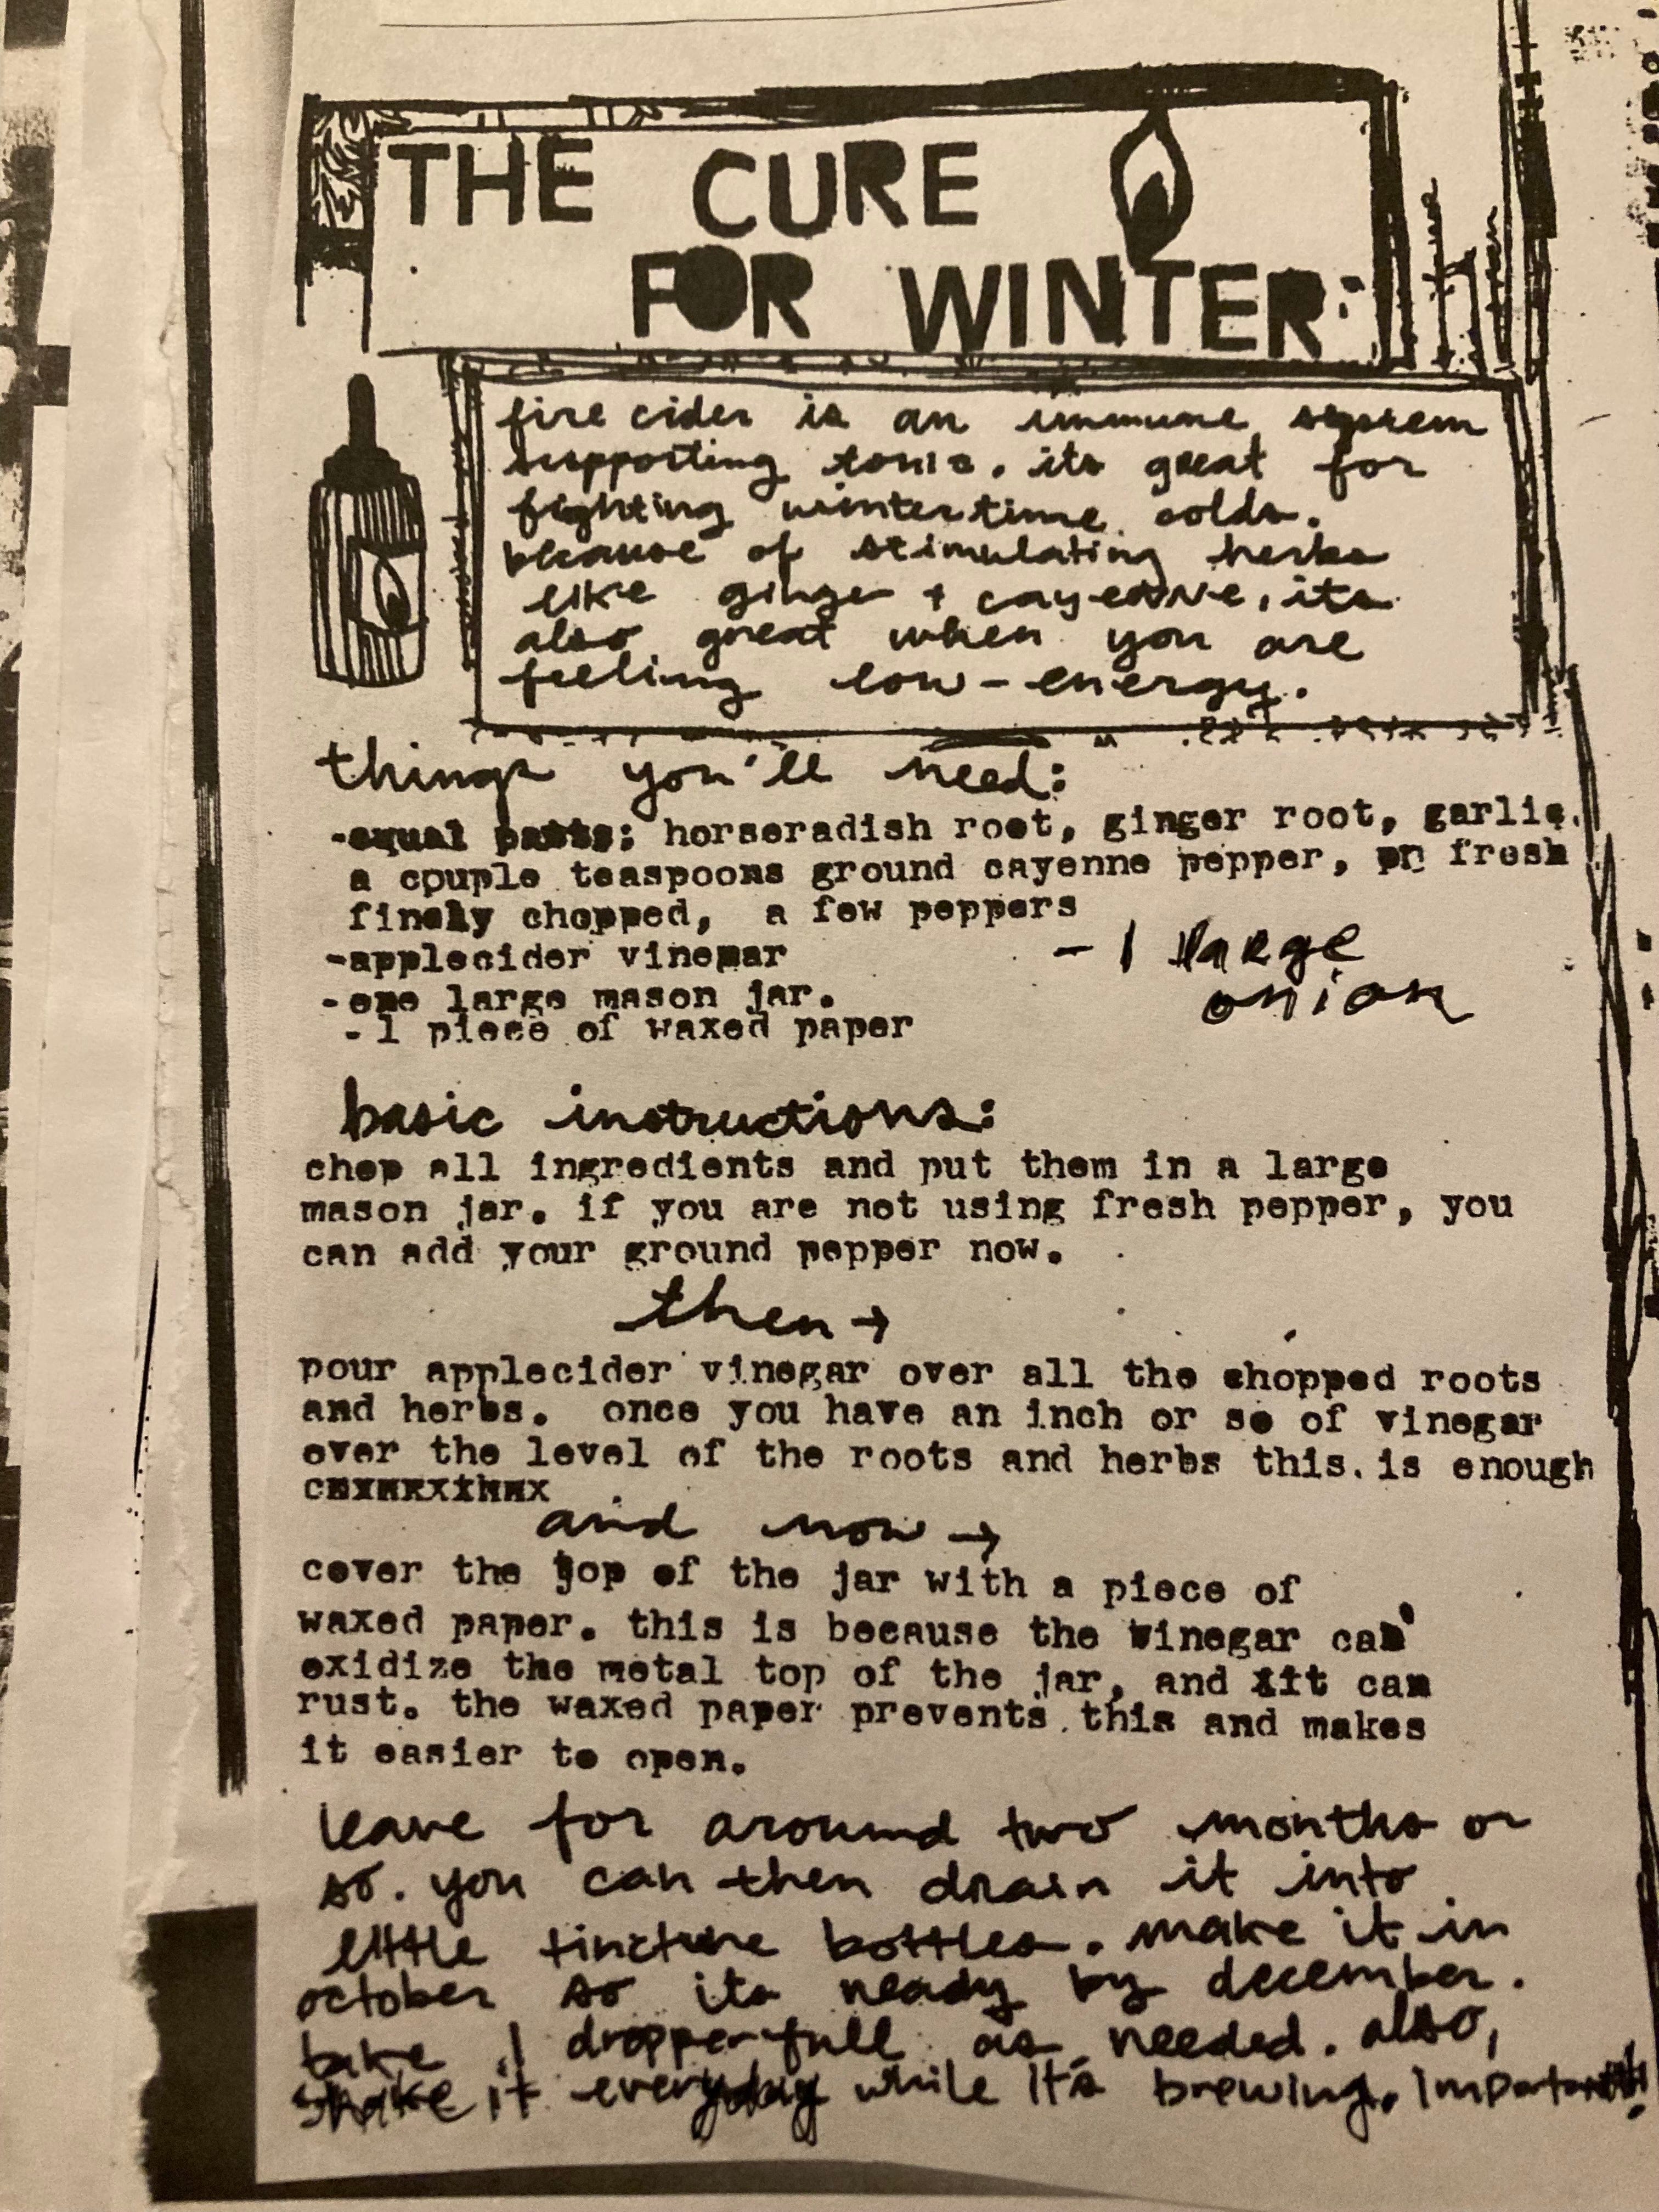 THE CURE
FOR WINTER
fire cider is an immune system
supporting tonic. its great for
fighting wintertime colds.
because of stimulating herbs
like ginger + cayenne, its
also great when you are
feeling low-energy.
things you'll need:
-equal parts: horseradish root, ginger root, garlic.
a couple teaspoons ground cayenne pepper, or fresh
finely chopped, a few peppers
-applecider vinegar
- 1 large
onion
-one large mason jar.
- 1 piece of waxed paper
basic instructions:
chop all ingredients and put them in a large
mason jar. if you are not using fresh pepper, you
can add your ground pepper now.
then →
pour applecider vinegar over all the chopped roots
and herbs. once you have an inch or so of vinegar
over the level of the roots and herbs this is enough
and now →
cover the top of the jar with a piece of
waxed paper. this is because the vinegar can
oxidize the metal top of the jar, and it can
rust. the waxed paper prevents this and makes
it easier to open.
leave for around two months or
so. you can then drain it into
little tincture bottles. make it in
october so its ready by december.
take 1 dropper-full as needed. also,
shake it everyday while it's brewing. Important!